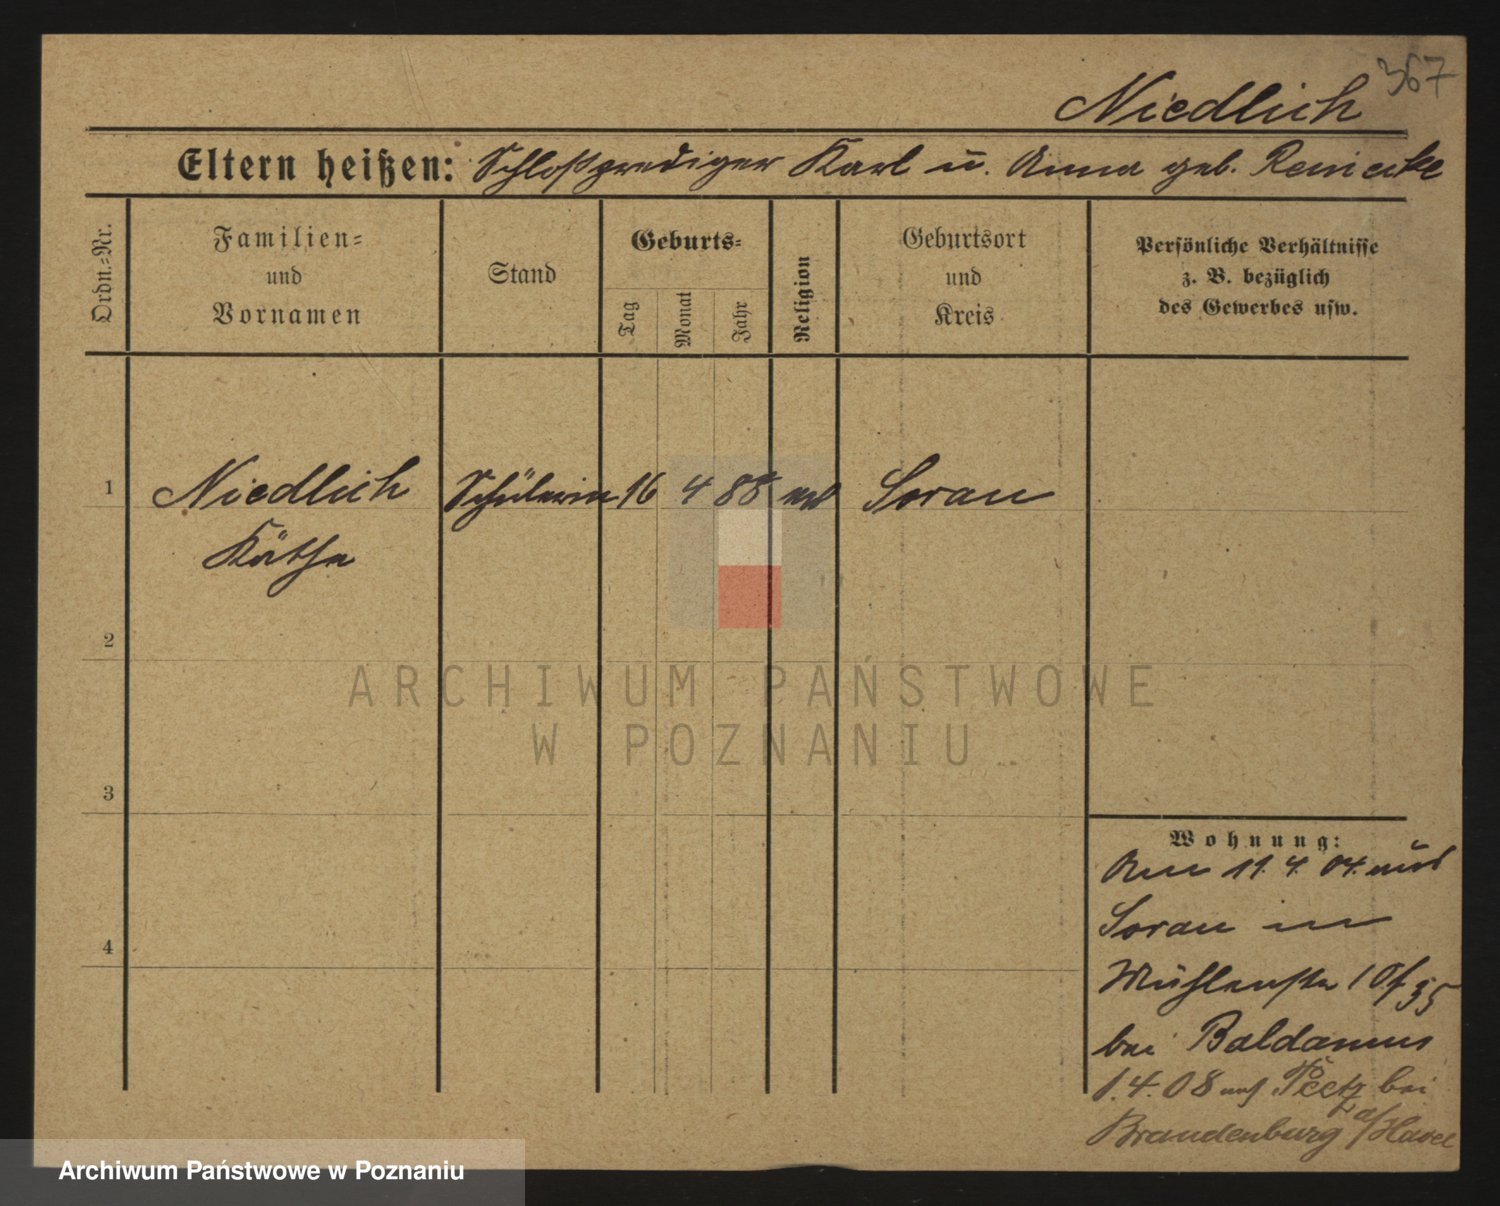 367
Niedlich
Eltern heißen: Schloßprediger Karl u. Anna geb. Reinicke
Ordn.-Nr.
Familien-
und
Vornamen
Stand
Geburts-
Tag
Monat
Jahr
Religion
Geburtsort
und
Kreis
Persönliche Verhältnisse
z. B. bezüglich
des Gewerbes usw.
1
Niedlich Schülerin 16 4 88 Sorau
Käthe
2
3
4
Wohnung:
11.4.04. aus
Sorau
Mühlenstr
bei Baldamus
1.4.08 nach bei
Brandenburg a/Havel
ARCHIWUM PAŃSTWOWE
W POZNANIU
Archiwum Państwowe w Poznaniu